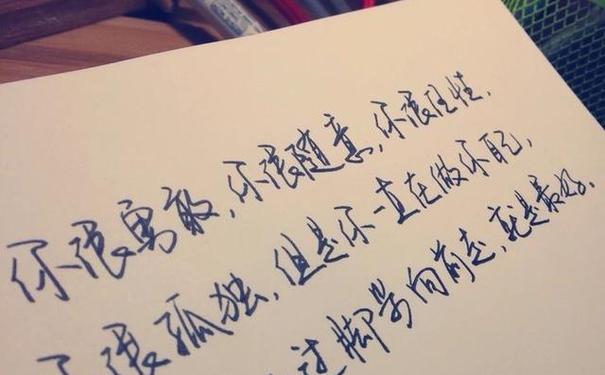 你很勇敢,你很随意,你很任性.
很孤独,但是你一直在做你自己,
过脚步向前走,就是最好.